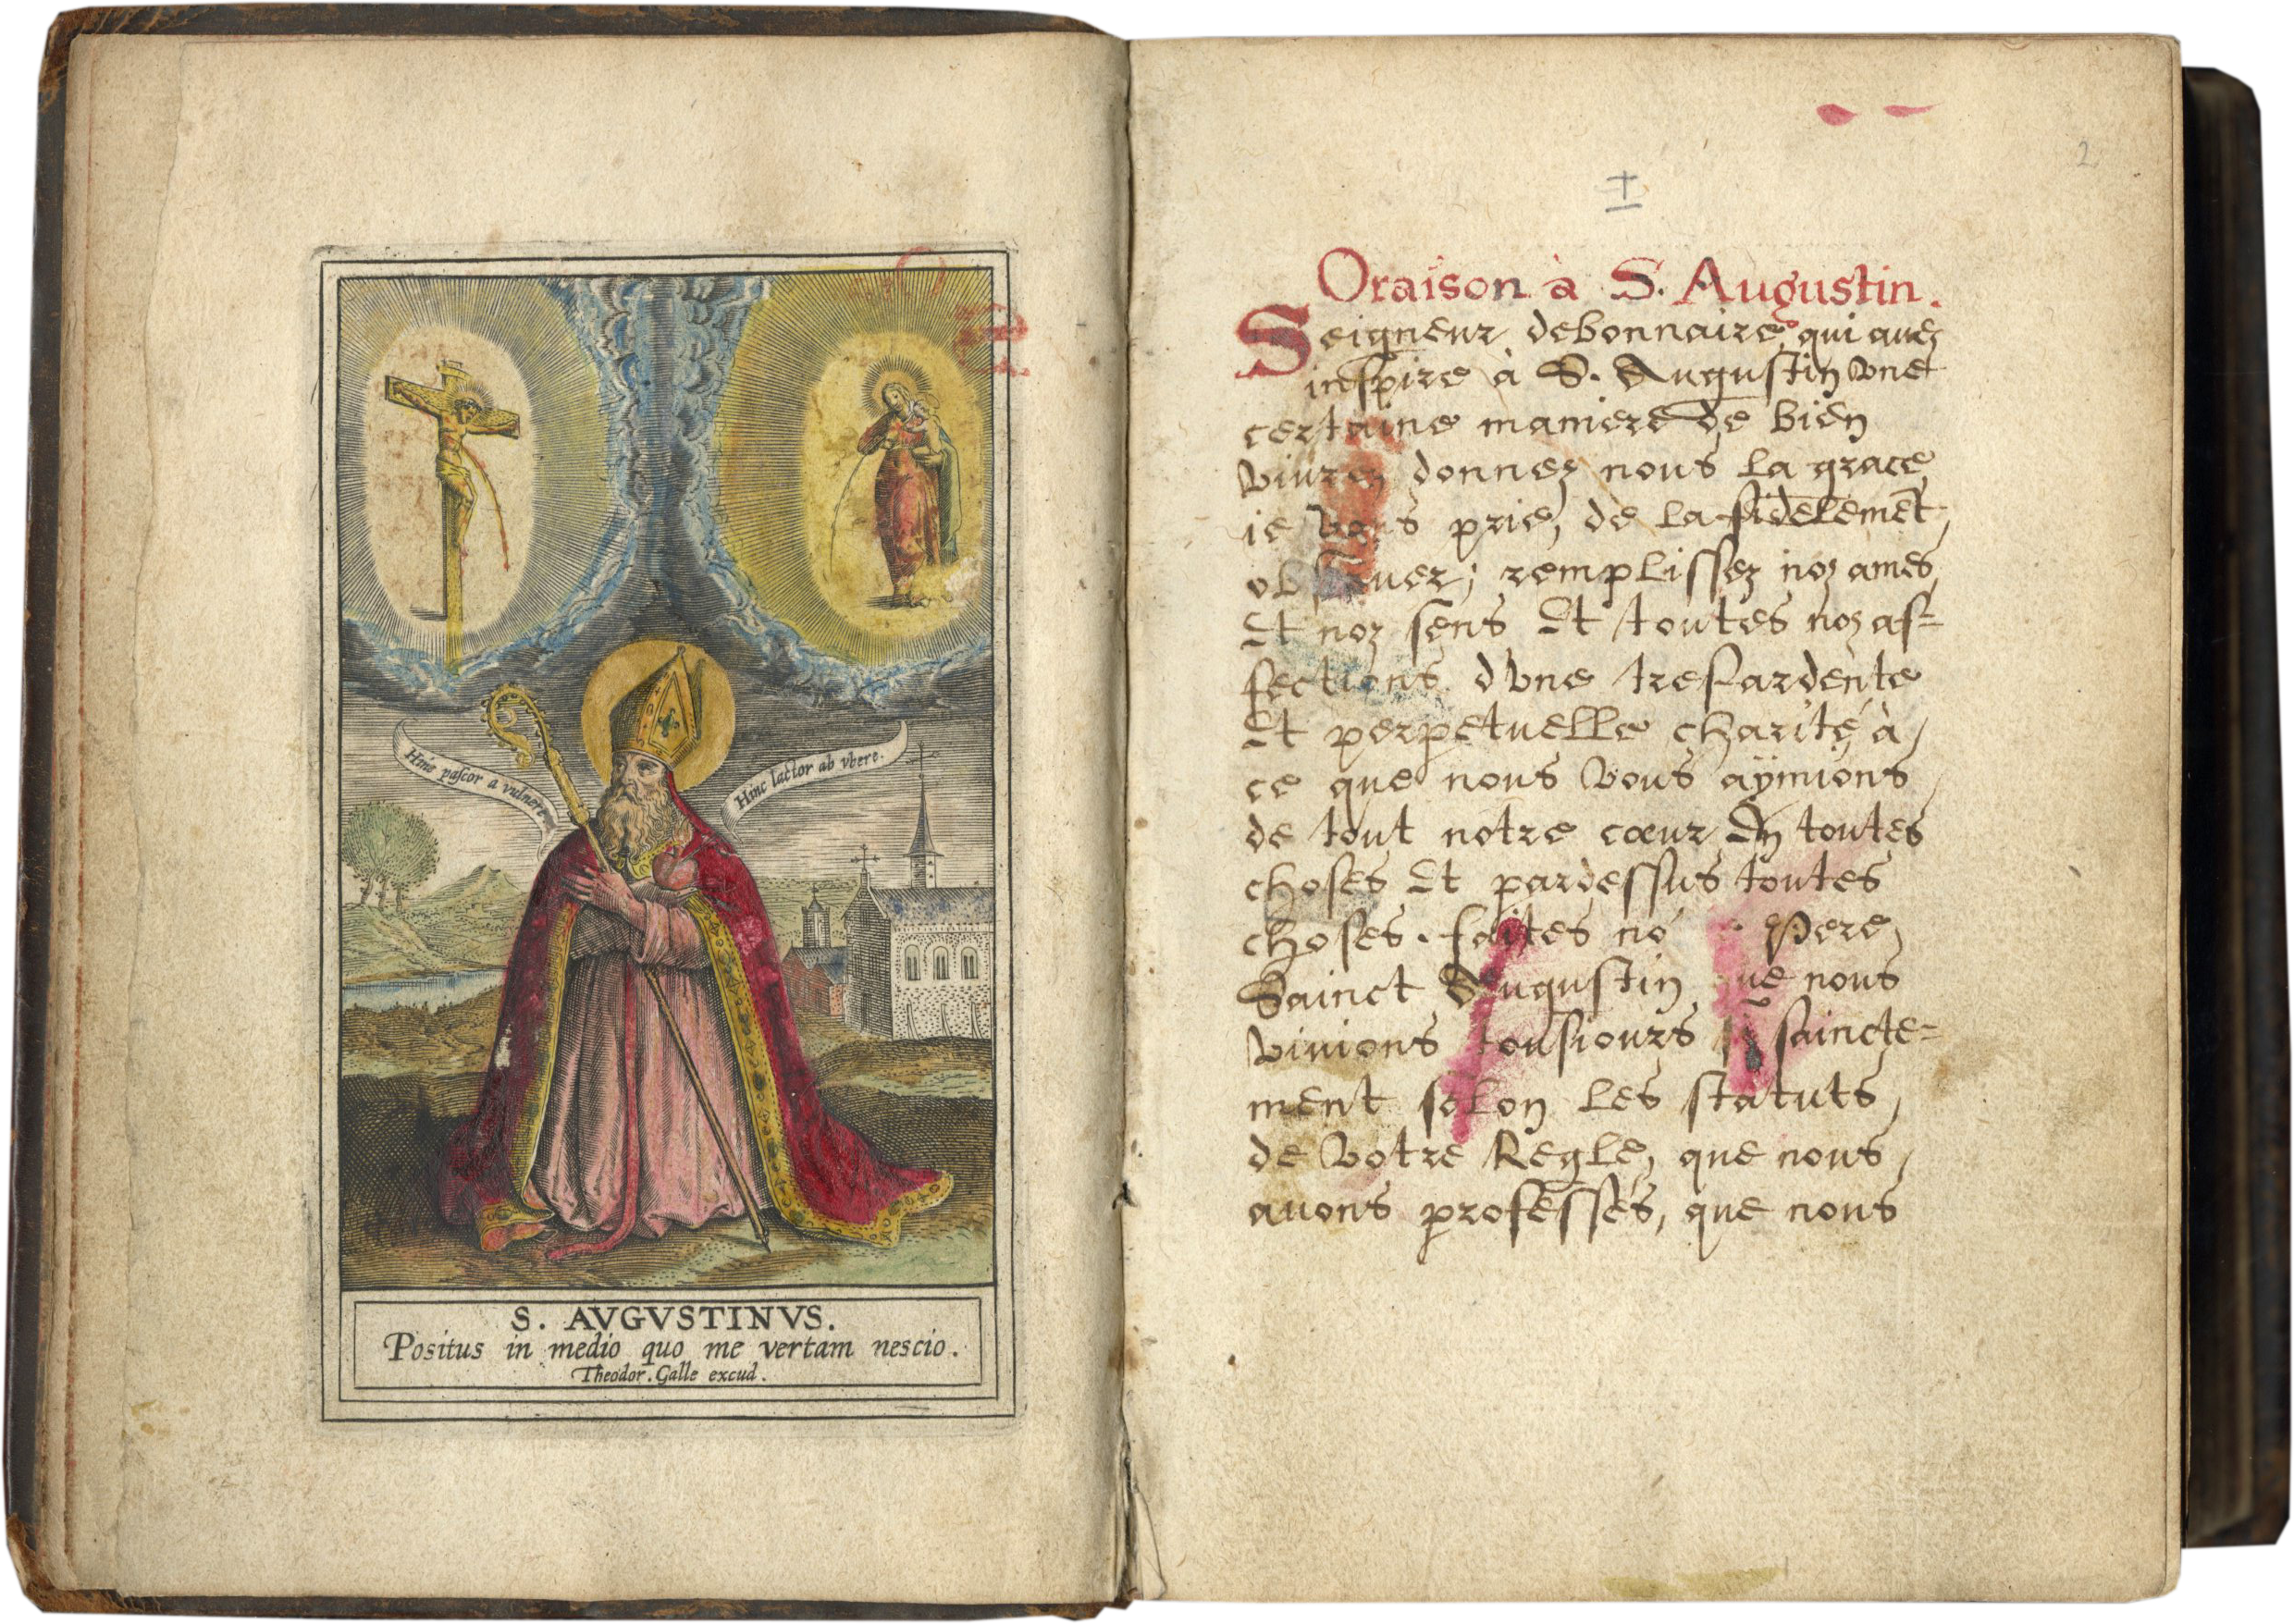 Hinc pascor a vulnere
Hinc lactor ab vbere.
S. AVGVSTINVS.
Positus in medio quo me vertam nescio.
Theodor. Galle excud.
2
Oraison à S. Augustin.
Seigneur debonnaire, qui auez
inspire à S. Augustin vne
certaine maniere de bien
viure, donnez nous la grace
ie vous prie, de la fidelemēt
obseruer; remplissez noz ames
Et noz sens Et toutes noz af=
fections d'vne tresardente
Et perpetuelle charité, à
ce que nous vous aÿmions
de tout notre cœur En toutes
choses Et pardessus toutes
choses. faites Pere
Sainct Augustin que nous
viuions tousiours sy saincte=
ment selon les statuts
de votre Regle, que nous
auons professés, que nous